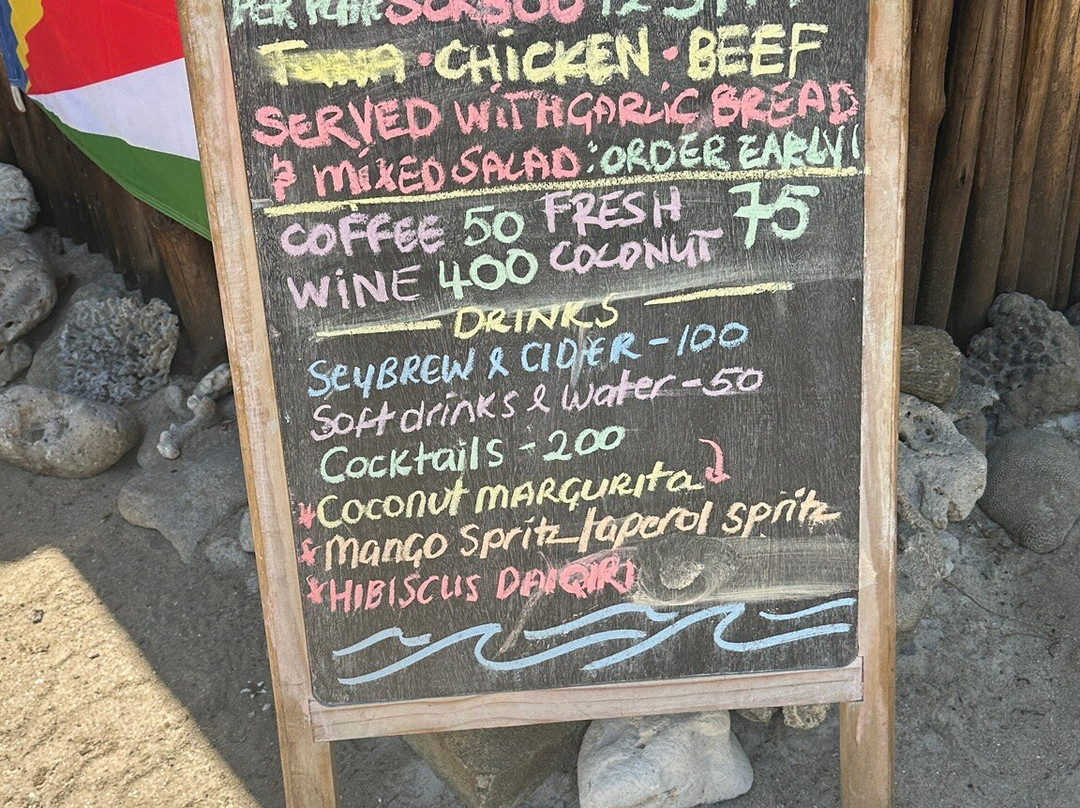 PER PLATE SCR300
TUNA • CHICKEN • BEEF
SERVED WITH GARLIC BREAD
& MIXED SALAD : ORDER EARLY!
COFFEE 50 FRESH COCONUT 75
WINE 400
DRINKS
SEYBREW & CIDER - 100
Soft drinks & water - 50
Cocktails - 200
*COCONUT MARGURITA
*MANGO Spritz / aperol spritz
*HIBISCUS DAIQIRI